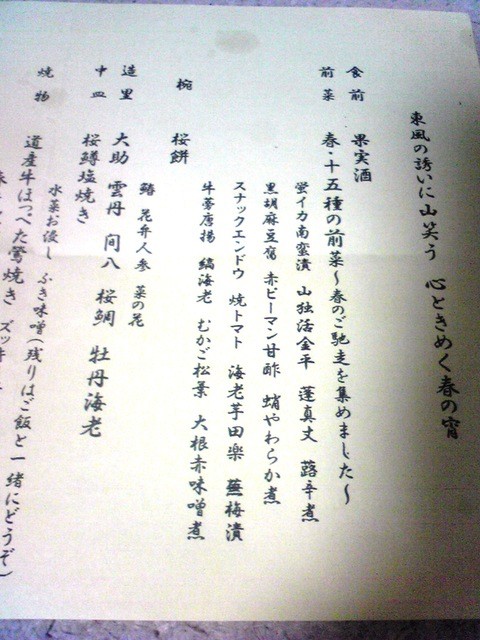 東風の誘いに山笑う 心ときめく春の宵
食前 果実酒
前菜 春・十五種の前菜～春のご馳走を集めました～
蛍イカ南蛮漬 山独活金平 蓬真丈 蕗辛煮
黒胡麻豆腐 赤ピーマン甘酢 蛸やわらか煮
スナックエンドウ 焼トマト 海老芋田楽 蕪梅漬
牛蒡唐揚 縞海老 むかご松葉 大根赤味噌煮
椀 桜餅
鰆 花弁人参 菜の花
造里 大助 雲丹 間八 桜鯛 牡丹海老
中皿 桜鱒塩焼き
水菜お浸し ふき味噌(残りはご飯と一緒にどうぞ)
焼物 道産牛ほっぺた鶯焼き ズッキ